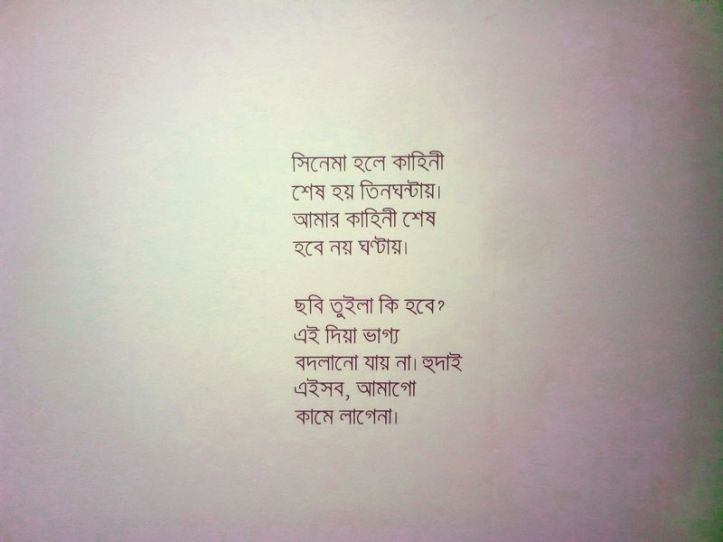 সিনেমা হলে কাহিনী
শেষ হয় তিনঘন্টায়।
আমার কাহিনী শেষ
হবে নয় ঘণ্টায়।
ছবি তুইলা কি হবে?
এই দিয়া ভাগ্য
বদলানো যায় না। হুদাই
এইসব, আমাগো
কামে লাগেনা।